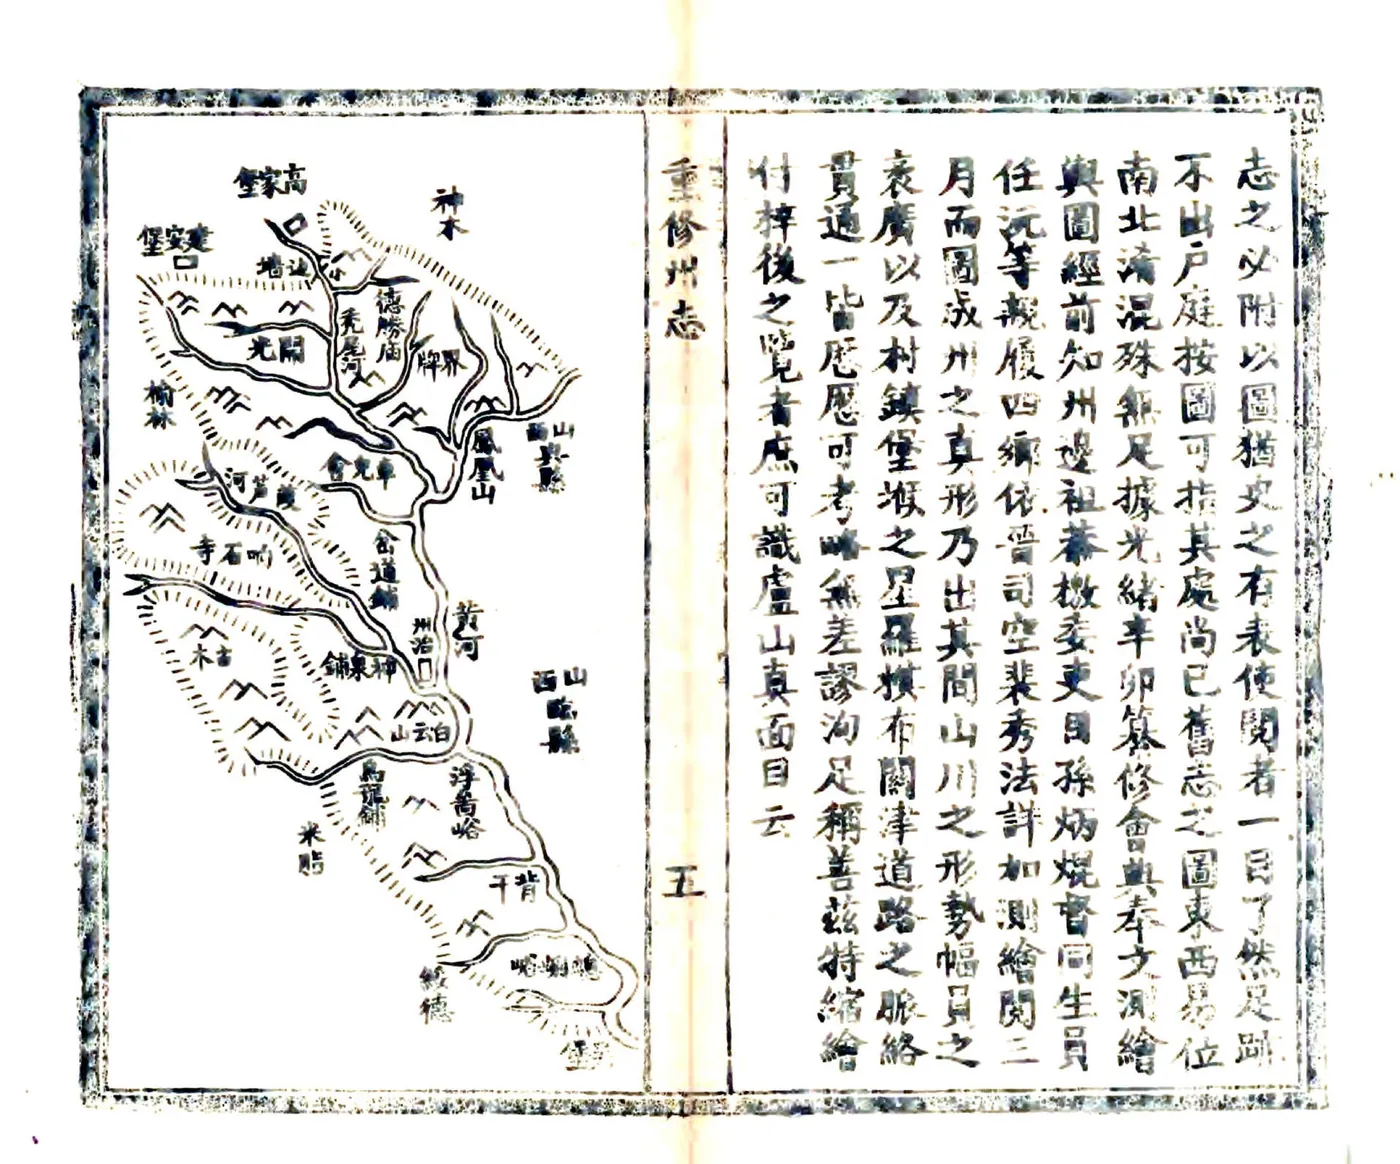 志之必附以圖猶史之有表使閱者一目了然足跡
不出戶庭按圖可指其處尚已舊志之圖東西易位
南北淆混殊無足據光緒辛卯簒修會典奉文測繪
輿圖經前知州邊祖恭檄委吏目孫炳焜督同生員
任沅等親履四鄉依晉司空裴秀法詳加測繪閱三
月而圖成州之真形乃出其間山川之形勢幅員之
袤廣以及村鎮堡堠之星羅棋布關津道路之脈絡
貫通一皆歷歷可考略無差謬洵足稱善茲特縮繪
付梓後之覽者庶可識盧山真面目云
重修州志
五
神木
高家堡
建安堡
邊墻
德勝庙
禿尾河
開光
界牌
榆林
鳳凰山
山西興縣
車會
葭芦河
响石寺
峦道鋪
州治
黃河
神泉鋪
古木
山西臨縣
白云山
烏龍鋪
浮菵峪
米脂
背干
綏德
堡